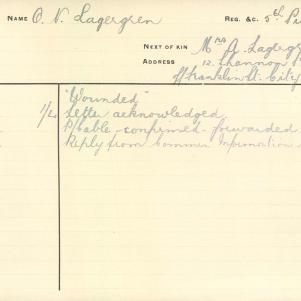 NAME O. V. Lagergren REG. &C. 5th Pi
NEXT OF KIN Mrs A. Lagergr
ADDRESS 12 Shannon
off Franklin St. City
"Wounded"
1/2 Letter acknowledged
P/Cable confirmed - forwarded
Reply from Commer Information